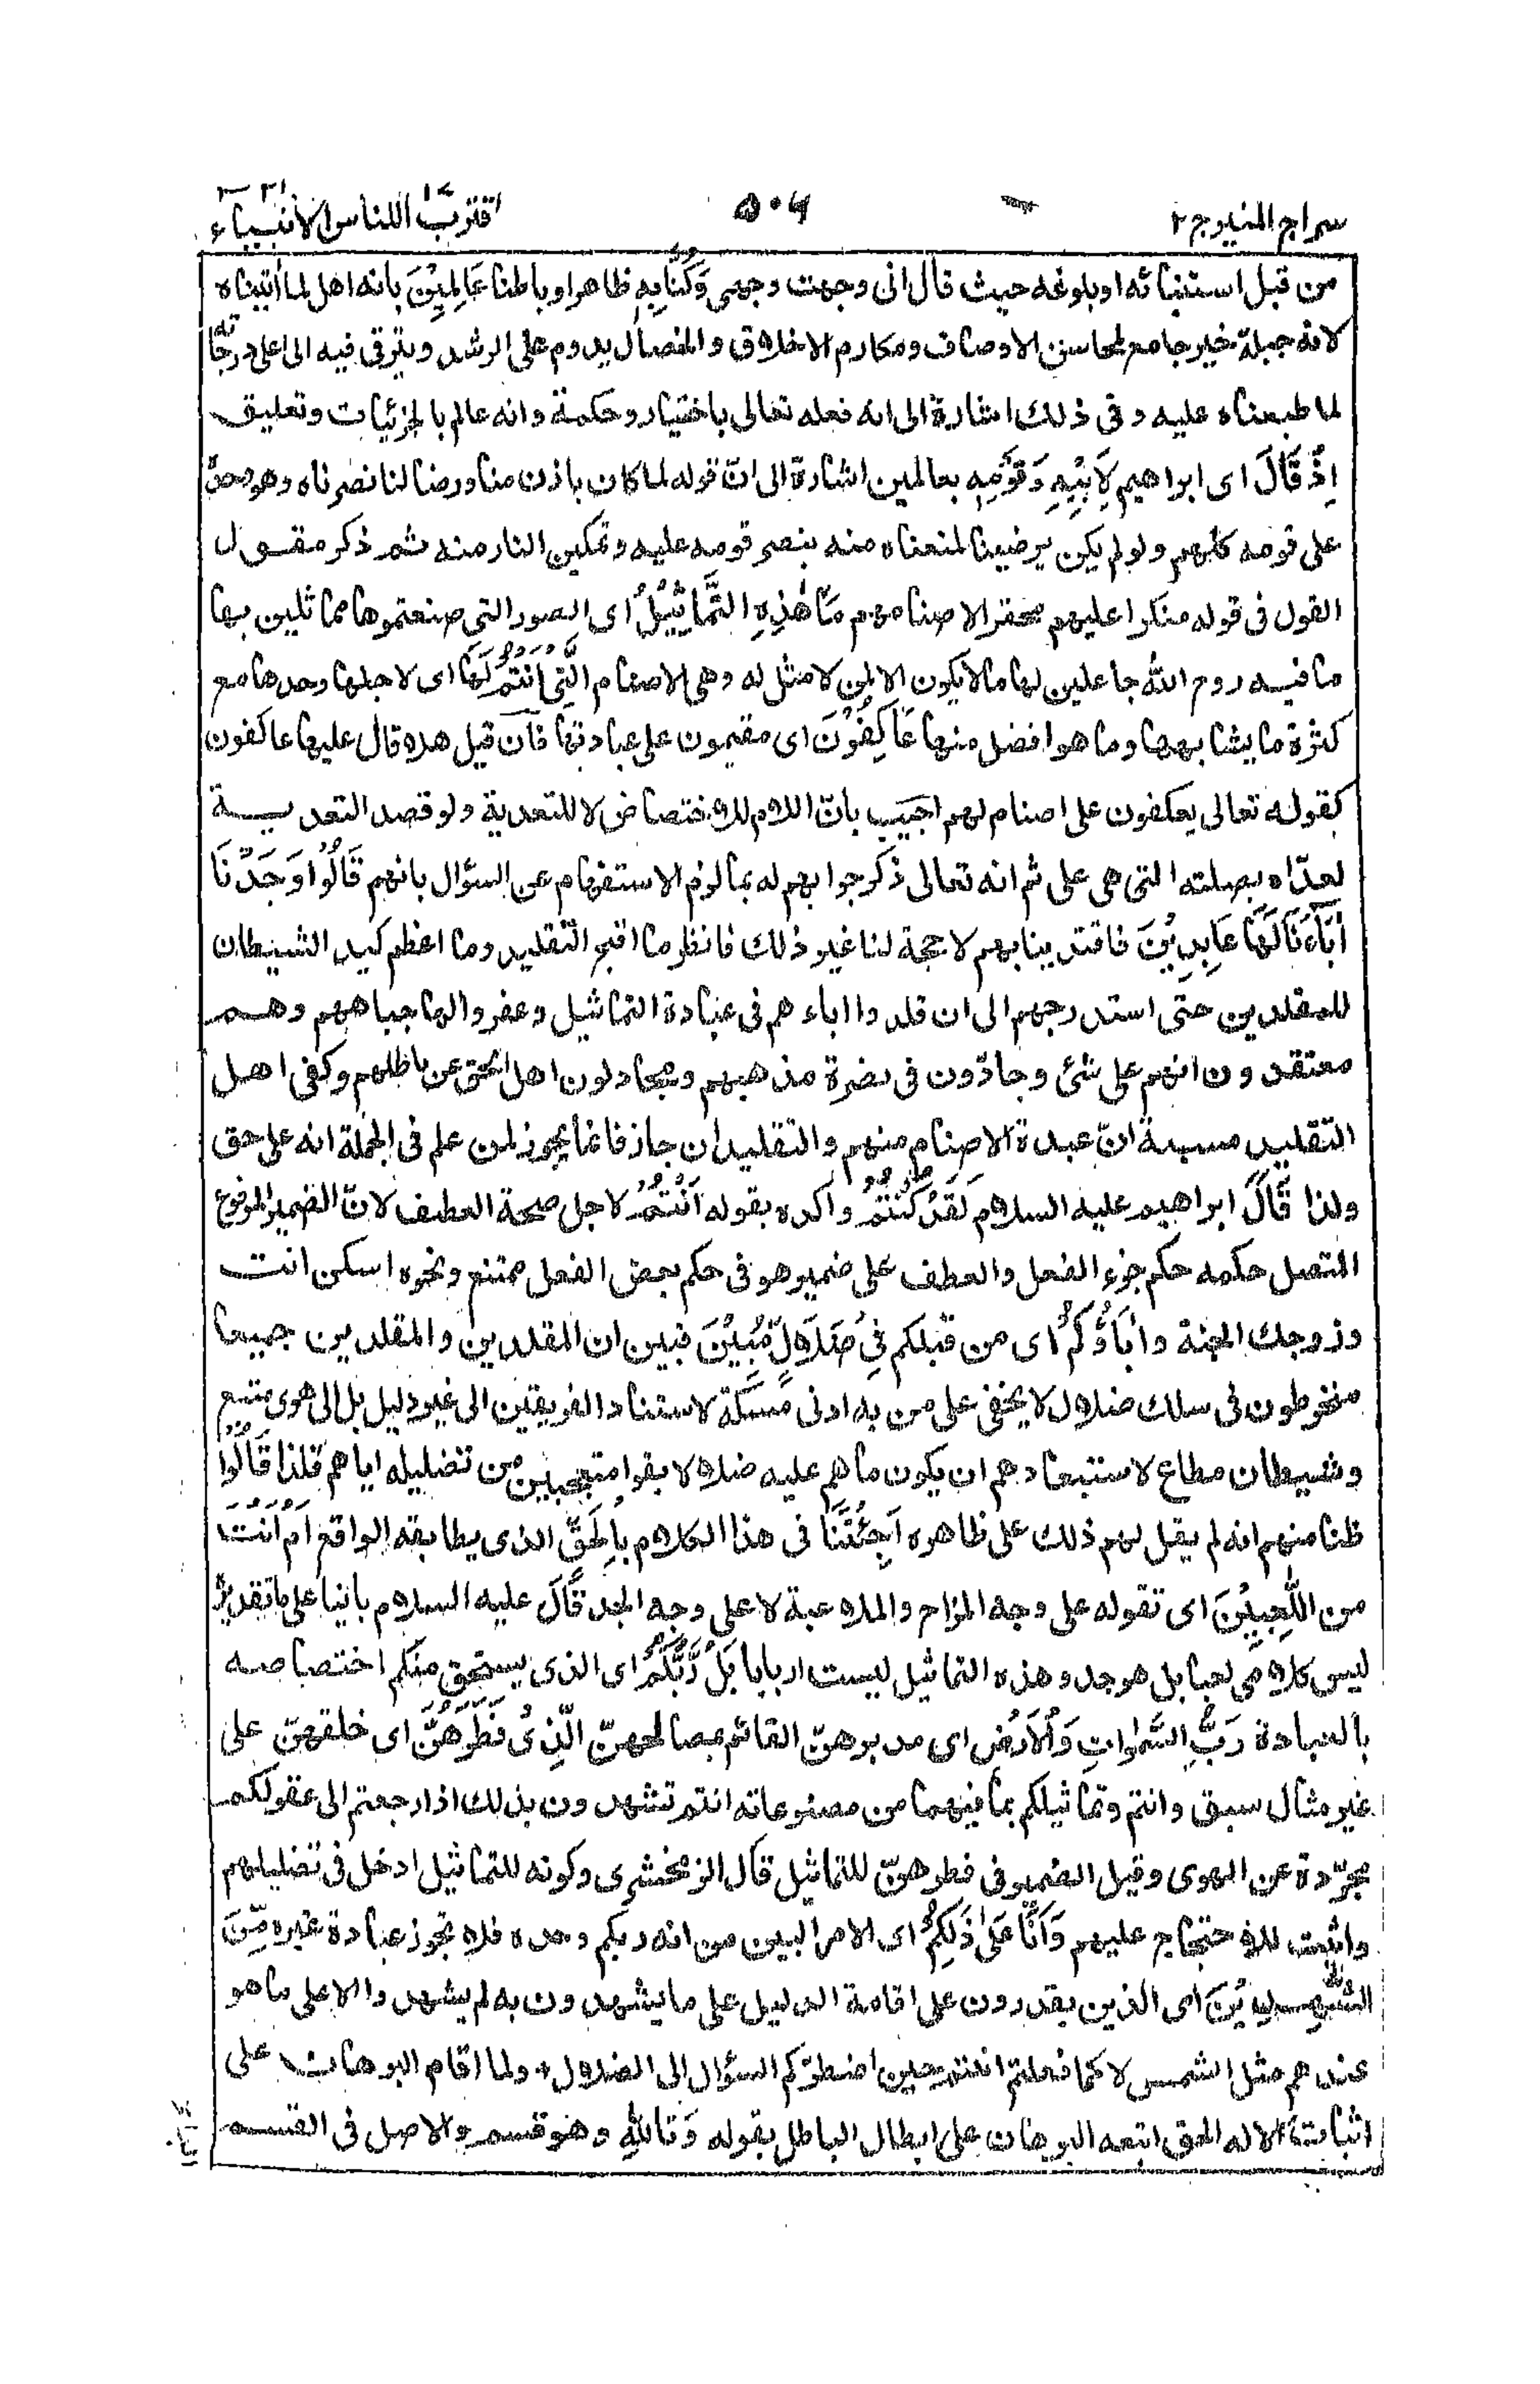 سراج المنير ج ٢
٥٠٦
اقترب للناس ١٧ الانبياء ٢١
من قبل استنبائه او بلوغه حيث قال انى وجهت وجهى وَكُنَّا بِهِ ظاهرا وباطنا عَالِمِيْنَ بانه اهل لما اٰتيناه
لانه جبلة خير جامع لمحاسن الاوصاف ومكارم الاخلاق والخصال يدوم على الرشد ويترقى فيه الى اعلى درجاته
لما طبعناه عليه وفى ذلك اشارة الى انه فعله تعالى باختيار وحكمة وانه عالم بالجزئيات وتعليق
اِذْ قَالَ اى ابراهيم لِاَبِيْهِ وَقَوْمِهٖ بعالمين اشارة الى انّ قوله لما كان باذن منا ورضا لنا نصرناه وهو وحدہ
على قومه كلهم ولو لم يكن يرضينا لمنعناه منه بنصر قومه عليه وتمكين النار منه ثم ذكر مقول
القول فى قوله منكرا عليهم محقرا لاصنامهم مَا هٰذِهِ التَّمَاثِيْلُ اى الصور التى صنعتموها مماثلين بها
ما فيه روح الله جاعلين لها ما لا يكون الا لمن لا مثل له وهى الاصنام الَّتِىْ اَنْتُمْ لَهَا اى لاجلها وحدها مع
كثرة ما يشابهها وما هو افضل منها عَاكِفُوْنَ اى مقيمون على عبادتها فان قيل هلا قال عليها عاكفون
كقوله تعالى يعكفون على اصنام لهم اجيب بانّ اللام للاختصاص لا للتعدية ولو قصد التعدية
لعدّاه بصلته التى هى على ثم انه تعالى ذكر جوابهم له بما لزم الاستفهام عن السؤال بانهم قَالُوْا وَجَدْنَا
اٰبَآءَنَا لَهَا عَابِدِيْنَ فاقتدينا بهم لا حجة لنا غير ذلك فانظر ما اقبح التقليد وما اعظم كيد الشيطان
للمقلدين حتى استدرجهم الى ان قلدوا اباءهم فى عبادة التماثيل وعفروا لها جباههم وهم
معتقدون انهم على شئ وجادّون فى نصرة مذهبهم ومجادلون اهل الحق عن باطلهم وكفى اهل
التقليد مسبة انّ عبدة الاصنام منهم والتقليد ان جاز فانما يجوز لمن علم فى الجملة انه على حق
ولذا قَالَ ابراهيم عليه السلام لَقَدْ كُنْتُمْ واكده بقوله اَنْتُمْ لاجل صحة العطف لانّ الضمير المرفوع
المتصل حكمه حكم جزء الفعل والعطف على ضمير هو فى حكم بعض الفعل ممتنع ونحوه اسكن انت
وزوجك الجنة وَاٰبَاؤُكُمْ اى من قبلكم فِىْ ضَلَالٍ مُّبِيْنَ فبين ان المقلدين والمقلدين جميعا
منخرطون فى سلك ضلال لا يخفى على من به ادنى مسكة لاستناد الفريقين الى غير دليل بل الى هوى متبع
وشيطان مطاع لاستبعادهم ان يكون ما هم عليه ضلالا بقوا متعجبين من تضليله اياهم فلذا قَالُوْا
ظنا منهم انه لم يقل لهم ذلك على ظاهره اَجِئْتَنَا فى هذا الكلام بِالْحَقِّ الذى يطابقه الواقع اَمْ اَنْتَ
مِنَ اللّٰعِبِيْنَ اى تقوله على وجه المزاح والملاعبة لا على وجه الجد قَالَ عليه السلام بانيا على ما تقديره
ليس كلامى لعبا بل هو جد وهذه التماثيل ليست اربابا بَلْ رَّبُّكُمْ اى الذى يستحق منكم اختصاصه
بالعبادة رَبُّ السَّمٰوٰاتِ وَالْاَرْضِ اى مدبرهنّ القائم بمصالحهنّ الَّذِىْ فَطَرَهُنَّ اى خلقهنّ على
غير مثال سبق وانتم وتماثيلكم بما فيهما من مصنوعاته انتم تشهدون بذلك اذا رجعتم الى عقولكم
مجرّدة عن الهوى وقيل الضمير فى فطرهنّ للتماثيل قال الزمخشرى وكونه للتماثيل ادخل فى تضليلهم
واثبت للاحتجاج عليهم وَاَنَا عَلٰى ذٰلِكُمْ اى الامر البين من انه ربكم وحده فلا تجوز عبادة غيره مِّنَ
الشّٰهِدِيْنَ اى الذين يقدرون على اقامة الدليل على ما يشهدون به لم يشهدوا الا على ما هو
عندهم مثل الشمس لا كما فعلتم انتم حين اضطرّكم السؤال الى الضلال + ولما اقام البرهان على
اثبات الاله الحق اتبعه البرهان على ابطال الباطل بقوله وَتَاللّٰهِ وهو قسم والاصل فى القسم